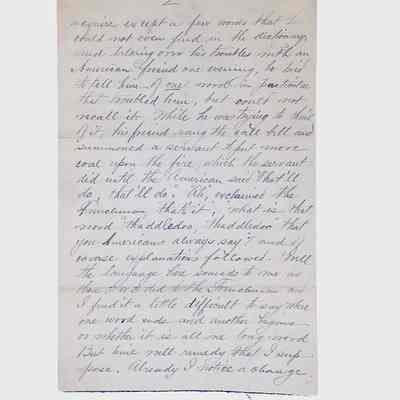 2
acquire except a few words that I
could not even find in the dictionary,
and talking over his troubles with an
American friend one evening, he tried
to tell him of one word in particular
that troubled him, but could not
recall it. While he was trying to think
of it, his friend rang the call bell and
summoned a servant to put more
coal upon the fire, which the servant
did until the American said "that'll
do, that'll do." "Ah," exclaimed the
Frenchman, that's it, "what is that
word "thaddledoo, thaddledoo" that
you Americans always say"? and of
course explanations followed. Well
the language here sounds to me as
that word did to the Frenchman and
I find it a little difficult to say where
one word ends and another begins
or whether it is all one long word
But time will remedy that I sup
pose. Already I notice a change.